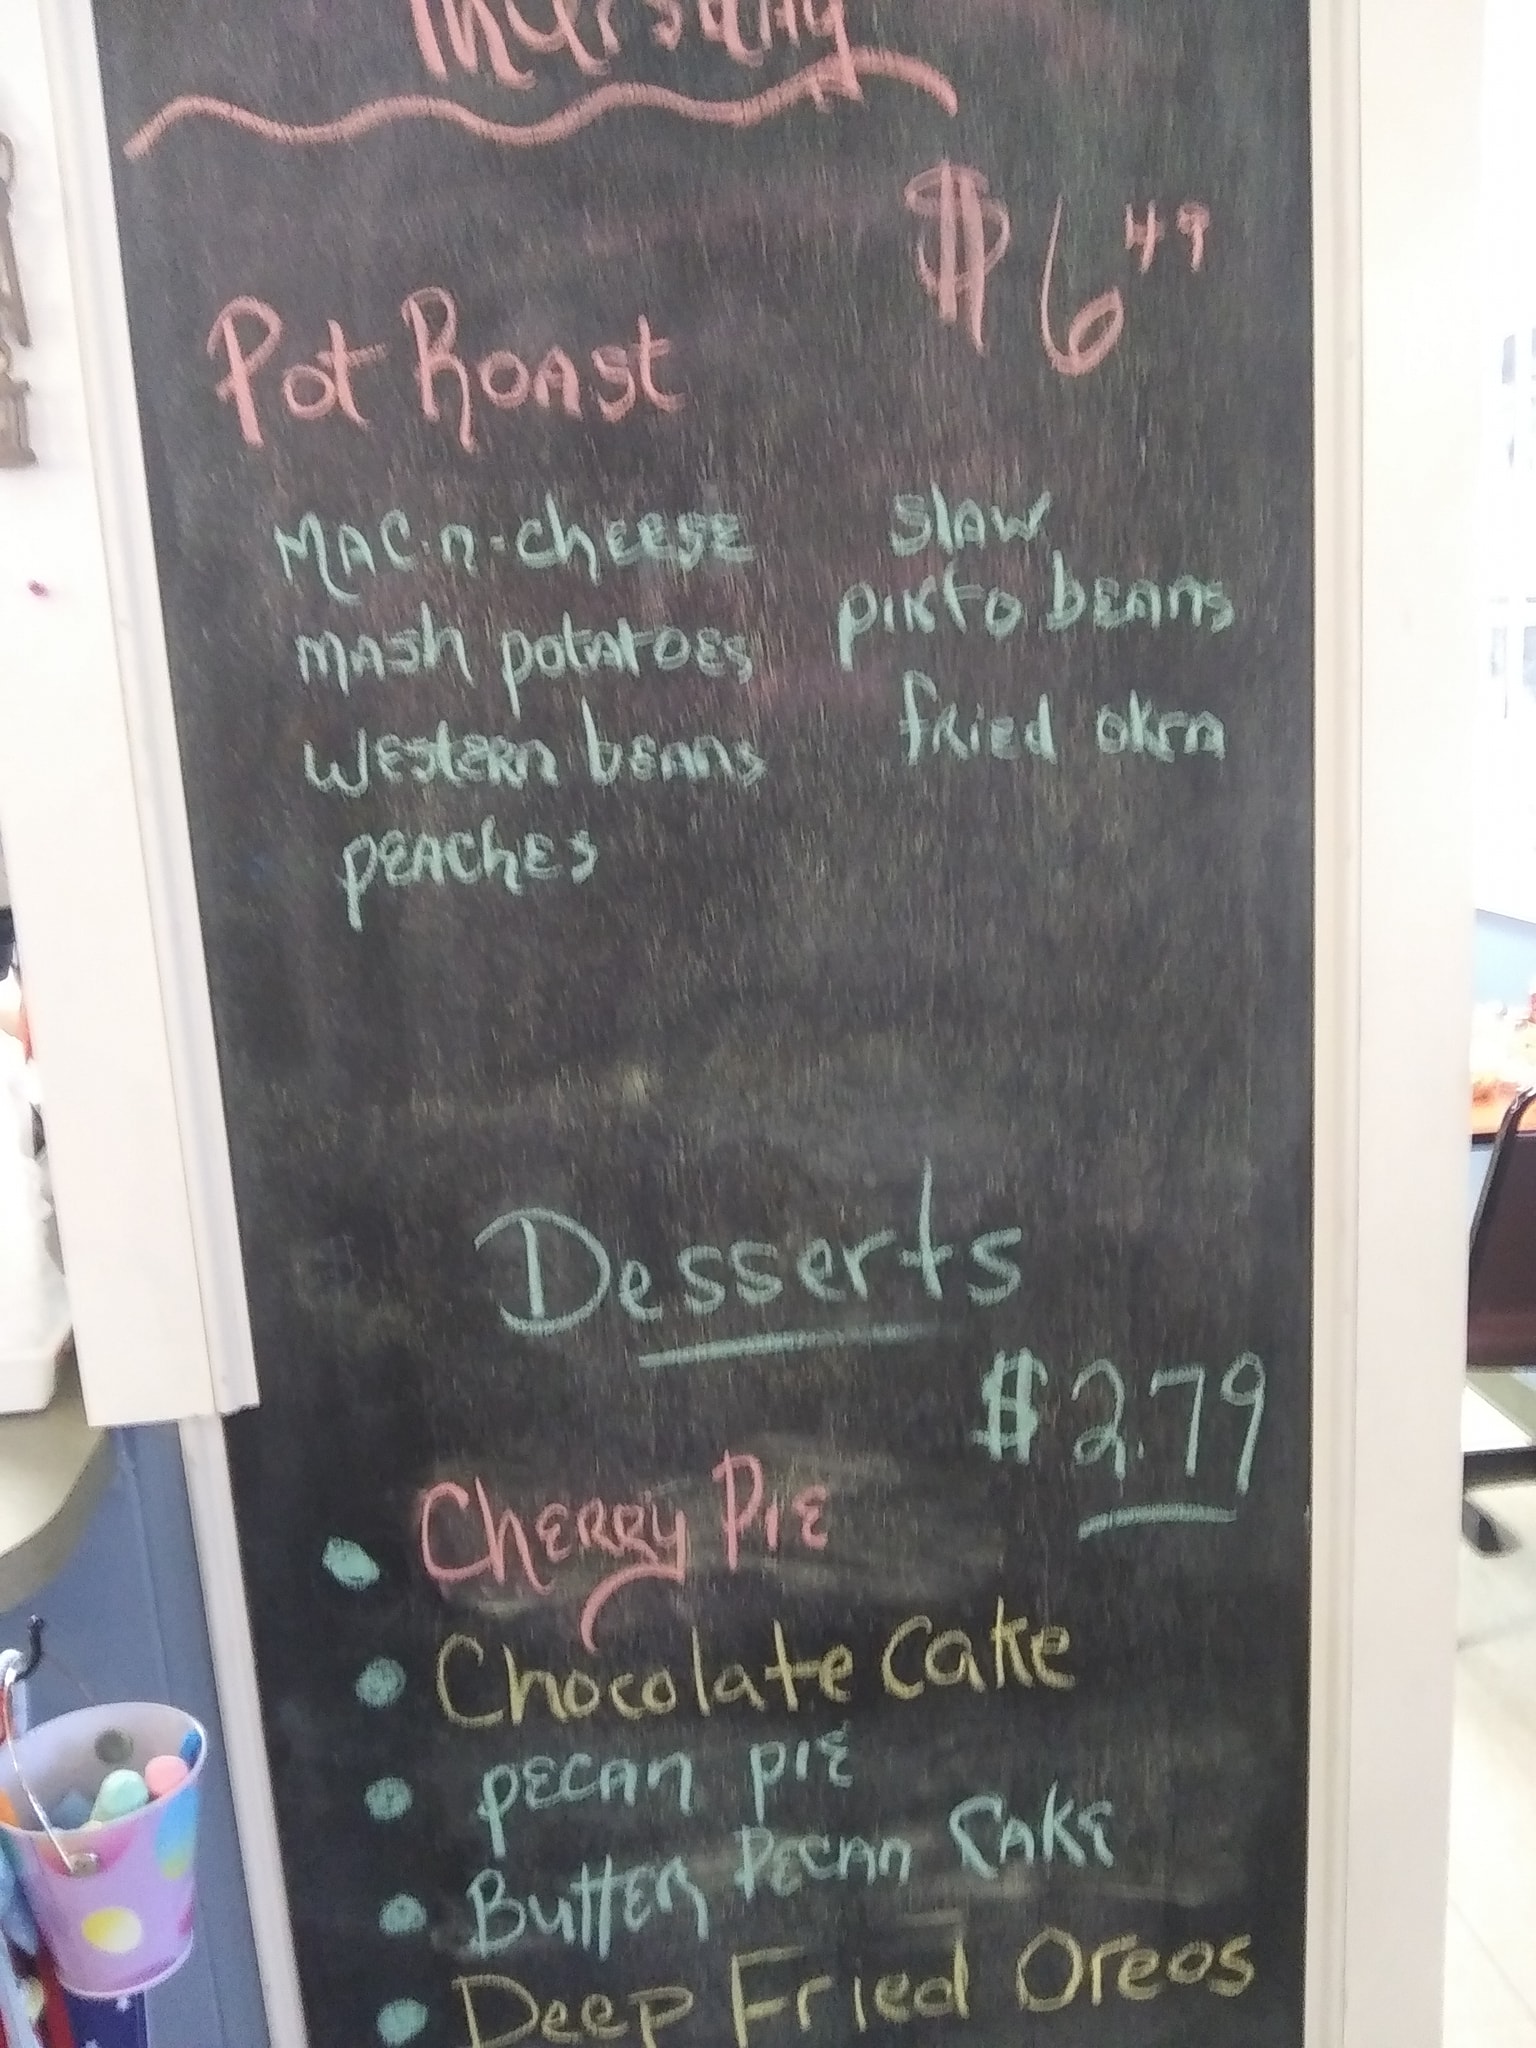 Thursday
$6 49
Pot Roast
MAC-n-cheese
mash potatoes
western beans
peaches
slaw
pinto beans
fried okra
Desserts
$2.79
• Cherry Pie
• Chocolate Cake
• pecan pie
• Butter Pecan Cake
• Deep Fried Oreos